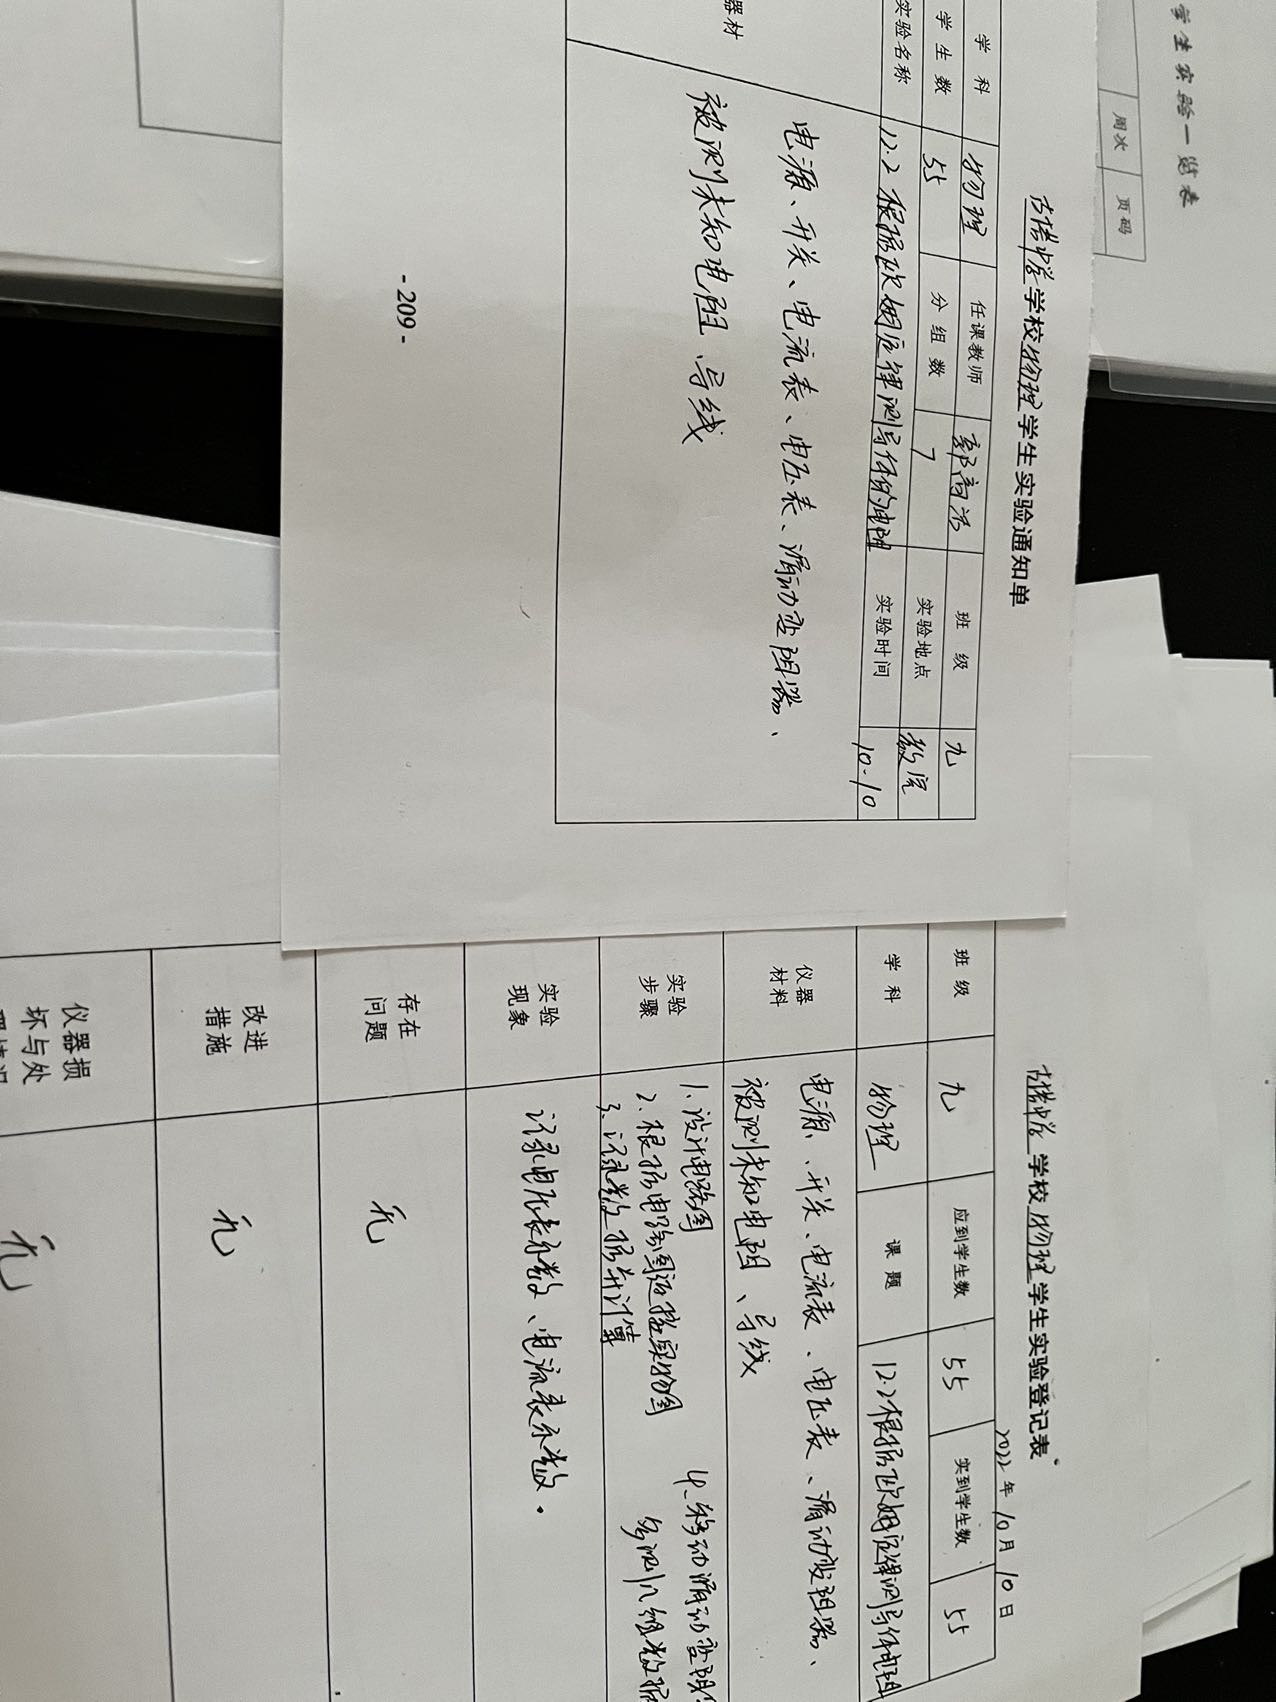 学生实验一览表
周次 页码
学校物理学生实验通知单
学科 物理 任课教师 班级 九
学生数 55 分组数 7 实验地点
实验名称 12.2根据欧姆定律测导体的电阻 实验时间 10-10
器材
电源、开关、电流表、电压表、滑动变阻器、
被测未知电阻、导线
- 209 -
学校物理学生实验登记表
2022年10月10日
班级 九 应到学生数 55 实到学生数 55
学科 物理 课题 12.2根据欧姆定律测导体电阻
仪器材料
电源、开关、电流表、电压表、滑动变阻器、
被测未知电阻、导线
实验步骤
1、设计电路图
2、根据电路图连接实物图
3、记录数据并计算
4、移动滑动变阻
多测几组数据
实验现象
记录电压表示数、电流表示数。
存在问题 无
改进措施 无
仪器损坏与处 无